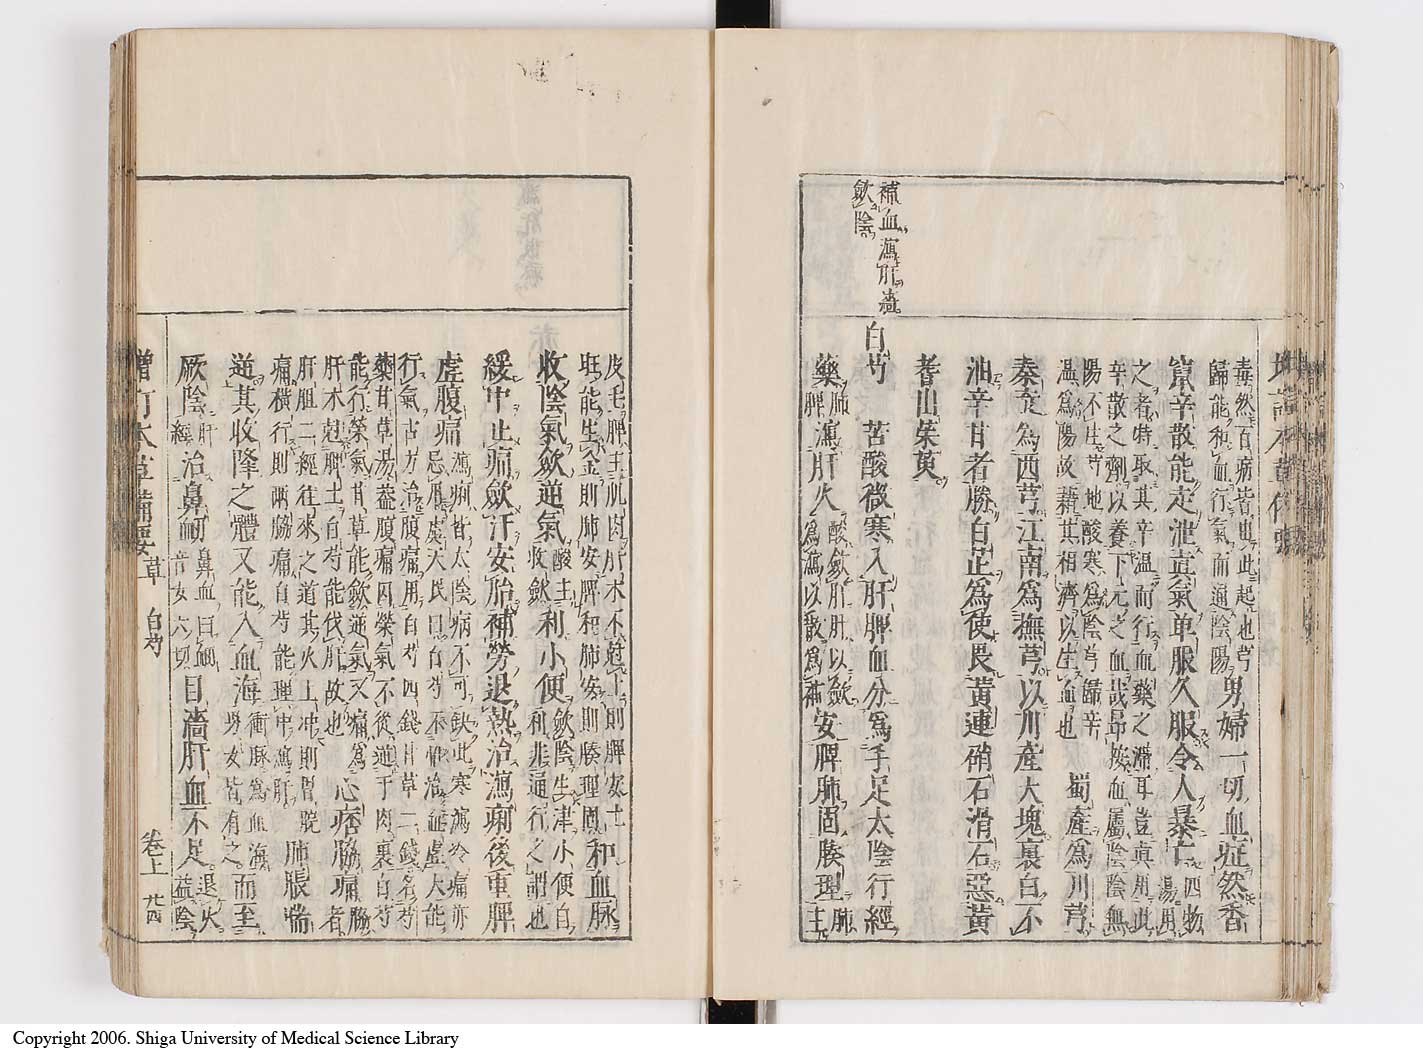 毒然百病皆由此起也芎
歸能和血行氣而通陰陽
男婦一切血症然香
竄辛散能走泄真氣单服久服令人暴亡
四物
湯用
之者特取其辛温而行血藥之滞耳豈真用此
辛散之劑以養下元之血哉昂按血屬陰陰無
陽不生芎地酸寒為陰芎歸辛
温為陽故藉其相濟以生血也
蜀産為川芎
秦産為西芎江南為撫芎以川産大塊裏白不
油辛甘者勝白芷為使畏黄連硝石滑石惡黄
耆山茱萸
補血瀉肝濇
斂陰
白芍
苦酸微寒入肝脾血分為手足太陰行經
藥
肺
脾
瀉肝火
酸斂肝肝以斂
為瀉以散為補
安脾肺固腠理
肺
主
皮毛脾主肌肉肝木不尅土則脾安土
旺能生金則肺安脾和肺安則腠理固
和血脉
收陰氣斂逆氣
酸主
收斂
利小便
斂陰生津小便自
利非通行之謂也
緩中止痛斂汗安胎補勞退熱治瀉痢後重脾
虚腹痛
瀉痢皆太陰病不可缺此寒瀉冷痛亦
忌虞天民曰白芍不惟治血虚大能
行氣古方治腹痛用白芍四錢甘草二錢名芍
藥甘草湯蓋腹痛因榮氣不從逆于肉裏白芍
能行榮氣甘草能斂逆氣又痛為
肝木尅脾土白芍能伐肝故也
心痞脇痛
脇
者
肝胆二經往来之道其火上冲則胃脘
痛横行則兩脇痛白芍能理中瀉肝
肺脹喘
逆其收降之體又能入血海
衝脉為血海
男女皆有之
而至
厥陰
肝
經
治鼻衂
鼻血曰衂
音女六切
目濇肝血不足
退火
益陰
增訂本草備要 草 白芍 卷上 廿四